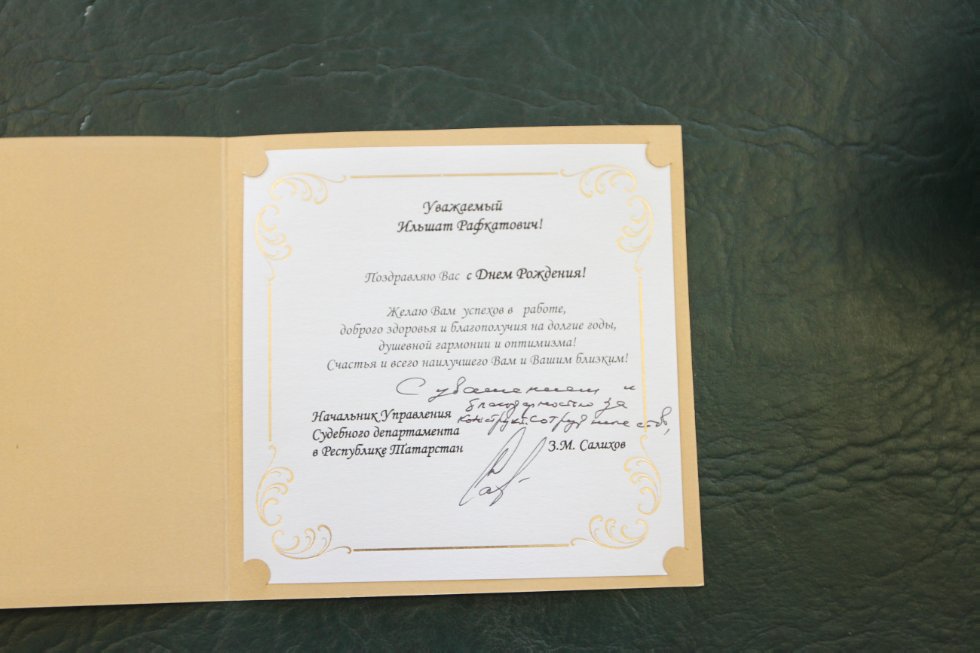 Уважаемый
Ильшат Рафкатович!
Поздравляю Вас с Днем Рождения!
Желаю Вам успехов в работе,
доброго здоровья и благополучия на долгие годы,
душевной гармонии и оптимизма!
Счастья и всего наилучшего Вам и Вашим близким!
С уважением и
благодарностью за
конструкт. сотрудничество,
Начальник Управления
Судебного департамента
в Республике Татарстан
З.М. Салихов